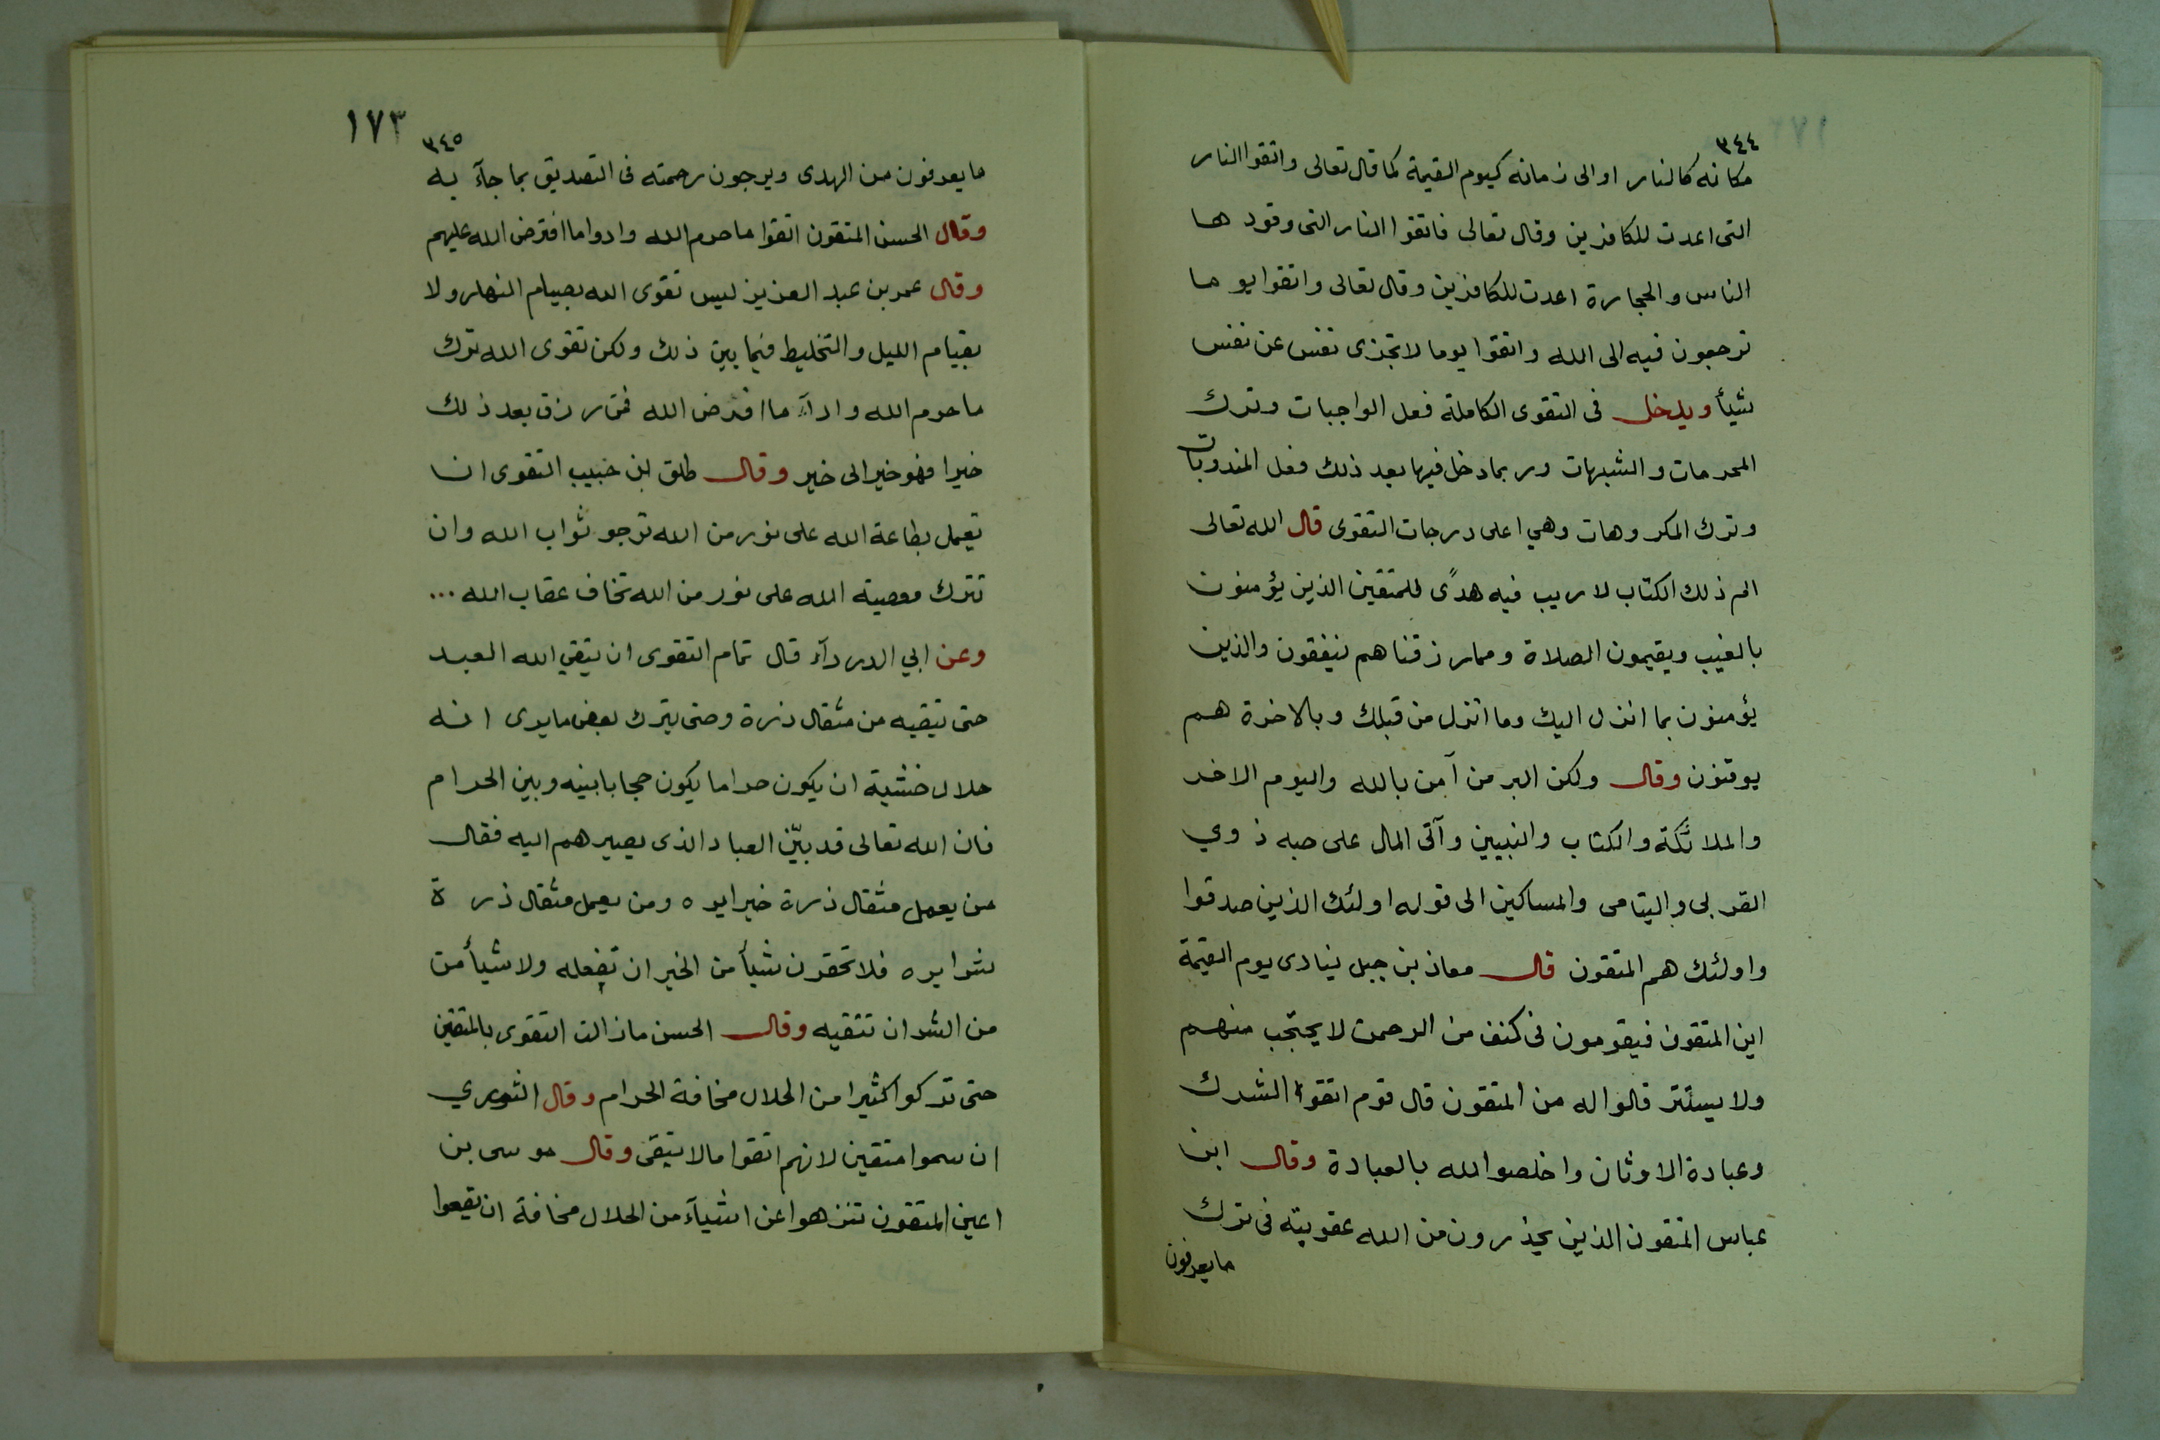 ٣٤٤
مكانه كالنار او الى زمانه كيوم القيمة كما قال تعالى واتقوا النار
التى اعدت للكافرين وقال تعالى فاتقوا النار التى وقود ها
الناس والحجارة اعدت للكافرين وقال تعالى واتقوا يو ما
ترجعون فيه الى الله واتقوا يوما لا تجزى نفس عن نفس
شيأ ويدخل فى التقوى الكاملة فعل الواجبات وترك
المحرمات والشبهات وربما دخل فيها بعد ذلك فعل المندوبات
وترك المكروهات وهي اعلى درجات التقوى قال الله تعالى
الم ذلك الكتاب لا ريب فيه هدًى للمتقين الذين يؤمنون
بالغيب ويقيمون الصلاة ومما رزقناهم ينفقون والذين
يؤمنون بما انزل اليك وما انزل من قبلك وبالاخرة هم
يوقنون وقال ولكن البر من آمن بالله واليوم الاخر
والملائكة والكتاب والنبيين وآتى المال على حبه ذوي
القربى واليتامى والمساكين الى قوله اولئك الذين صدقوا
واولئك هم المتقون قال معاذ بن جبل ينادى يوم القيمة
اين المتقون فيقومون فى كنف من الرحمن لا يحتجب منهم
ولا يستتر قالوا له من المتقون قال قوم اتقوا الشرك
وعبادة الاوثان واخلصوا لله بالعبادة وقال ابن
عباس المتقون الذين يحذرون من الله عقوبته فى ترك
ما يعرفون
١٧٣
٣٤٥
ما يعرفون من الهدى ويرجون رحمته فى التصديق بما جآء به
وقال الحسن المتقون اتقوا ما حرم الله وادوا ما افترض الله عليهم
وقال عمر بن عبد العزيز ليس تقوى الله بصيام النهار ولا
بقيام الليل والتخليط فيما بين ذلك ولكن تقوى الله ترك
ما حرم الله وادآء ما افترض الله فمن رزق بعد ذلك
خيرا فهو خير الى خير وقال طلق ابن حبيب التقوى ان
تعمل بطاعة الله على نور من الله ترجو ثواب الله وان
تترك معصية الله على نور من الله تخاف عقاب الله ...
وعن ابي الدردآء قال تمام التقوى ان يتقي الله العبد
حتى يتقيه من مثقال ذرة وحتى يترك بعض ما يرى انه
حلال خشية ان يكون حراما يكون حجابا بينه وبين الحرام
فان الله تعالى قد بيّن العباد الذى يصيرهم اليه فقال
من يعمل مثقال ذرة خيرا يره ومن يعمل مثقال ذرة
شرا يره فلا تحقرن شيأ من الخير ان تفعله ولا شيأ من
من الشر ان تتقيه وقال الحسن ما زالت التقوى بالمتقين
حتى تركوا كثيرا من الحلال مخافة الحرام وقال الثوري
ان سموا متقين لانهم اتقوا ما لا يتقى وقال موسى بن
اعين المتقون تنزهوا عن اشيآء من الحلال مخافة ان يقعوا